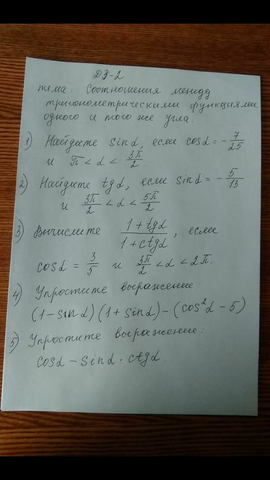 ДЗ-2
тема: Соотношения между
тригонометрическими функциями
одного и того же угла.
1) Найдите sinα, если cosα = -7/25
и π < α < 3π/2
2) Найдите tgα, если sinα = -5/13
и 3π/2 < α < 5π/2
3) Вычислите (1+tgα)/(1+ctgα), если
cosα = 3/5 и 3π/2 < α < 2π.
4) Упростите выражение
(1-sinα)(1+sinα)-(cos²α-5)
5) Упростите выражение:
cosα - sinα · ctgα